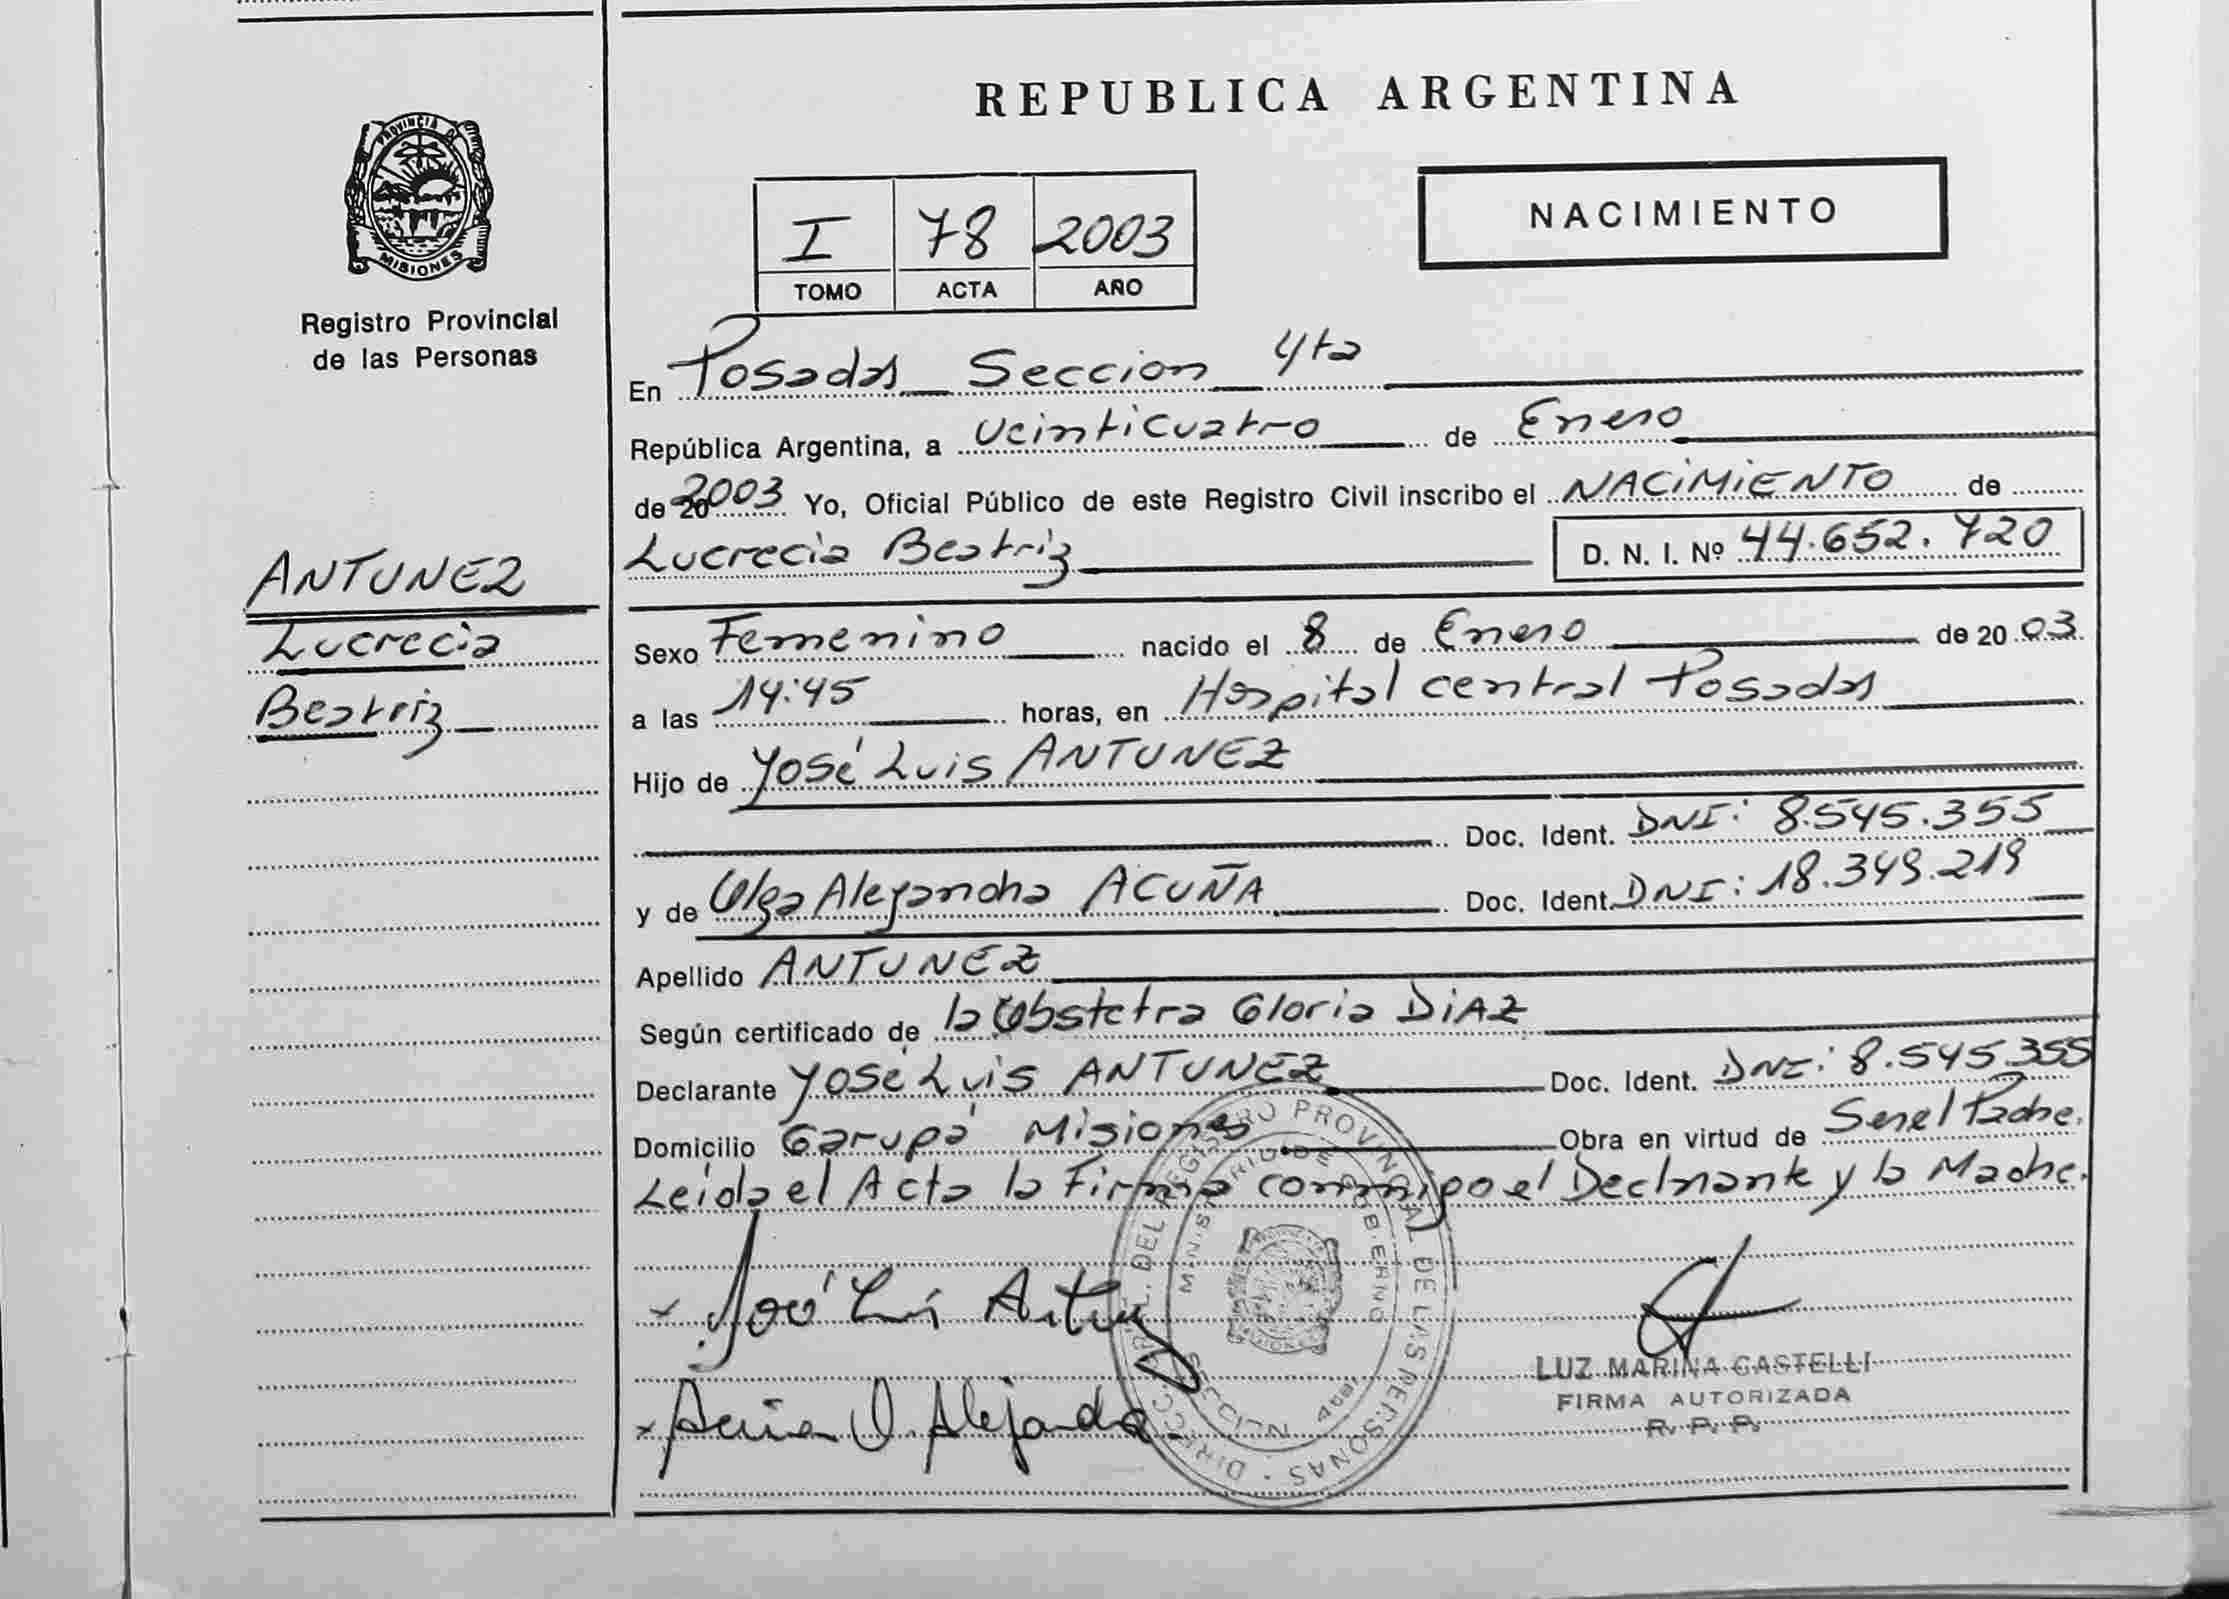 PROVINCIA DE
MISIONES
Registro Provincial
de las Personas
ANTUNEZ
Lucrecia
Beatriz
REPUBLICA ARGENTINA
I 78 2003
TOMO ACTA AÑO
NACIMIENTO
En Posadas Seccion 4ta
República Argentina, a veinticuatro de Enero
de 20 2003 Yo, Oficial Público de este Registro Civil inscribo el NACIMIENTO de
Lucrecia Beatriz D. N. I. Nº 44.652.720
Sexo Femenino nacido el 8 de Enero de 20 03
a las 14:45 horas, en Hospital central Posadas
Hijo de José Luis ANTUNEZ
Doc. Ident. DNI: 8.545.355
y de Olga Alejandra ACUÑA Doc. Ident. DNI: 18.349.219
Apellido ANTUNEZ
Según certificado de la Obstetra Gloria DIAZ
Declarante José Luis ANTUNEZ Doc. Ident. DNI: 8.545.355
Domicilio Garupá Misiones Obra en virtud de Ser el Padre.
Leída el Acta la Firma conmigo el Declarante y la Madre.
José Luis Antunez
Acuña O. Alejandra
DIRECC. GRAL. DEL REGISTRO PROVINCIAL DE LAS PERSONAS
MINISTERIO DE GOBIERNO
SECCION 4ta
LUZ MARINA CASTELLI
FIRMA AUTORIZADA
R. P. P.